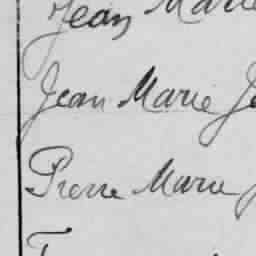 Jean Marie
Jean Marie
Pierre Marie